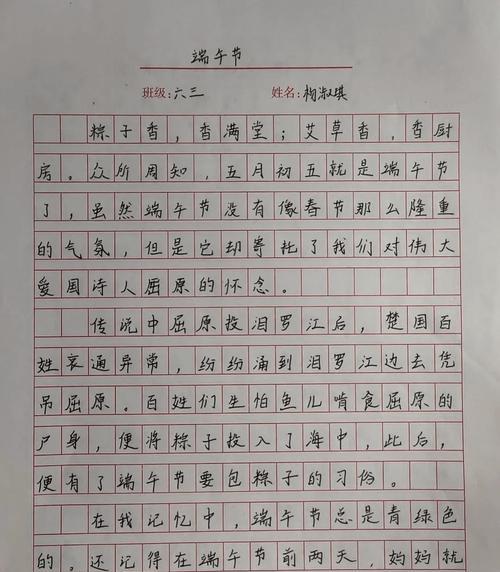 端午节
班级:六三 姓名:杨淑琪
粽子香，香满堂；艾草香，香厨
房。众所周知，五月初五就是端午节
了，虽然端午节没有像春节那么隆重
的气氛，但是它却寄托了我们对伟大
爱国诗人屈原的怀念。
传说中屈原投汨罗江后，楚国百
姓哀通异常，纷纷涌到汨罗江边去凭
吊屈原。百姓们生怕鱼儿啃食屈原的
尸身，便将粽子投入了海中，此后，
便有了端午节要包粽子的习俗。
在我记忆中，端午节总是青绿色
的，还记得在端午节前两天，妈妈就